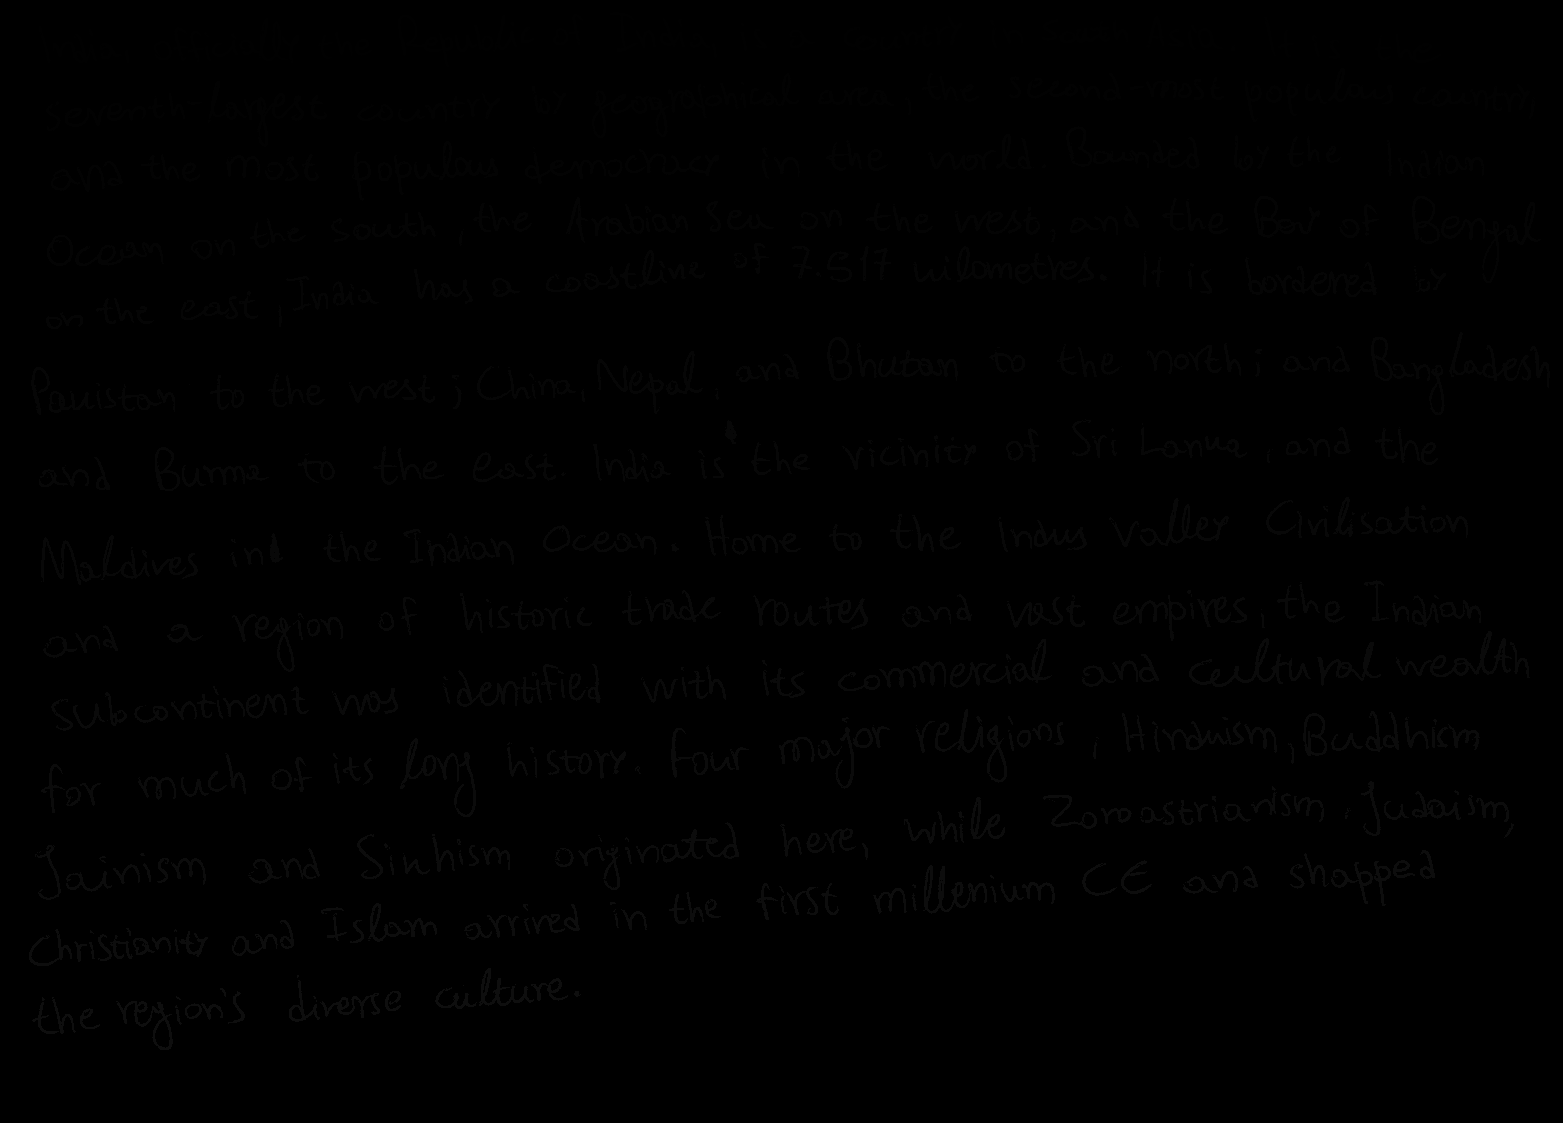 seventh-largest country by geographical area, the second-most populous country,
and the most populous democracy in the world. Bounded by the Indian
Ocean on the south, the Arabian Sea on the west, and the Bay of Bengal
on the east, India has a coastline of 7.517 kilometres. It is bordered by
Pakistan to the west; China, Nepal, and Bhutan to the north; and Bangladesh
and Burma to the east. India is the vicinity of Sri Lanka, and the
Maldives in the Indian Ocean. Home to the Indus Valley Civilisation
and a region of historic trade routes and vast empires, the Indian
subcontinent was identified with its commercial and cultural wealth
for much of its long history. Four major religions, Hinduism, Buddhism
Jainism and Sikhism originated here, while Zoroastrianism, Judaism,
Christianity and Islam arrived in the first millenium CE and shapped
the region's diverse culture.